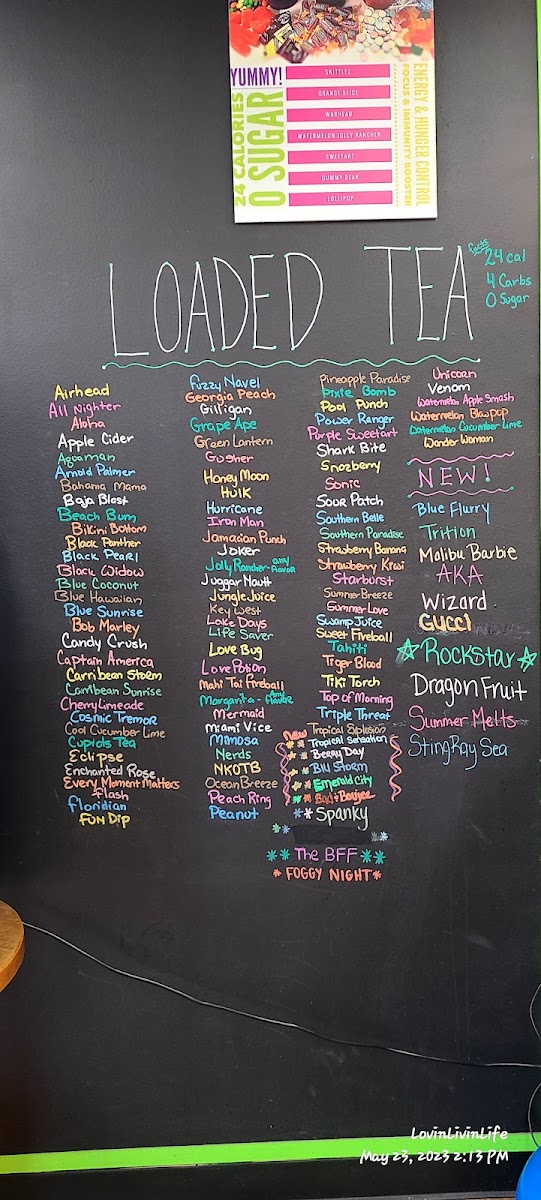 YUMMY!
24 CALORIES
0 SUGAR
SKITTLEZ
ORANGE SLICE
WARHEAD
WATERMELON JOLLY RANCHER
SWEETART
GUMMY BEAR
LOLLIPOP
ENERGY & HUNGER CONTROL
FOCUS & IMMUNITY BOOSTER
LOADED TEA
facts
24 cal
4 Carbs
0 Sugar
Airhead
All Nighter
Aloha
Apple Cider
Aquaman
Arnold Palmer
Bahama Mama
Baja Blast
Beach Bum
Bikini Bottom
Black Panther
Black Pearl
Black Widow
Blue Coconut
Blue Hawaiian
Blue Sunrise
Bob Marley
Candy Crush
Captain America
Carribean Storm
Carribean Sunrise
Cherry Limeade
Cosmic Tremor
Cool Cucumber Lime
Cupids Tea
Eclipse
Enchanted Rose
Every Moment Matters
Flash
Floridian
Fun Dip
Fuzzy Navel
Georgia Peach
Gilligan
Grape Ape
Green Lantern
Gusher
Honey Moon
Hulk
Hurricane
Iron Man
Jamacian Punch
Joker
Jolly Rancher - any Flavor
Juggar Nautt
Jungle Juice
Key West
Lake Days
Life Saver
Love Bug
Love Potion
Mahi Tai Fireball
Margarita - Any Flavor
Mermaid
Miami Vice
Mimosa
Nerds
NKOTB
Ocean Breeze
Peach Ring
Peanut
Pineapple Paradise
Pixie Bomb
Pool Punch
Power Ranger
Purple Sweetart
Shark Bite
Snozberry
Sonic
Sour Patch
Southern Belle
Southern Paradise
Strawberry Banana
Strawberry Kiwi
Starburst
Summer Breeze
Summer Love
Swamp Juice
Sweet Fireball
Tahiti
Tiger Blood
Tiki Torch
Top of Morning
Triple Threat
Tropical Splosion
New
Tropical Sensation
Berry Day
Blu Storm
Emerald City
Bad & Boujee
Spanky
The BFF
FOGGY NIGHT
Unicorn
Venom
Watermelon Apple Smash
Watermelon Blowpop
Watermelon Cucumber Lime
Wonder Woman
NEW!
Blue Flurry
Trition
Malibu Barbie
AKA
Wizard
GUCCI
Rockstar
Dragon Fruit
Summer Melts
StingRay Sea
LovinLivinLife
May 23, 2023 2:13 PM